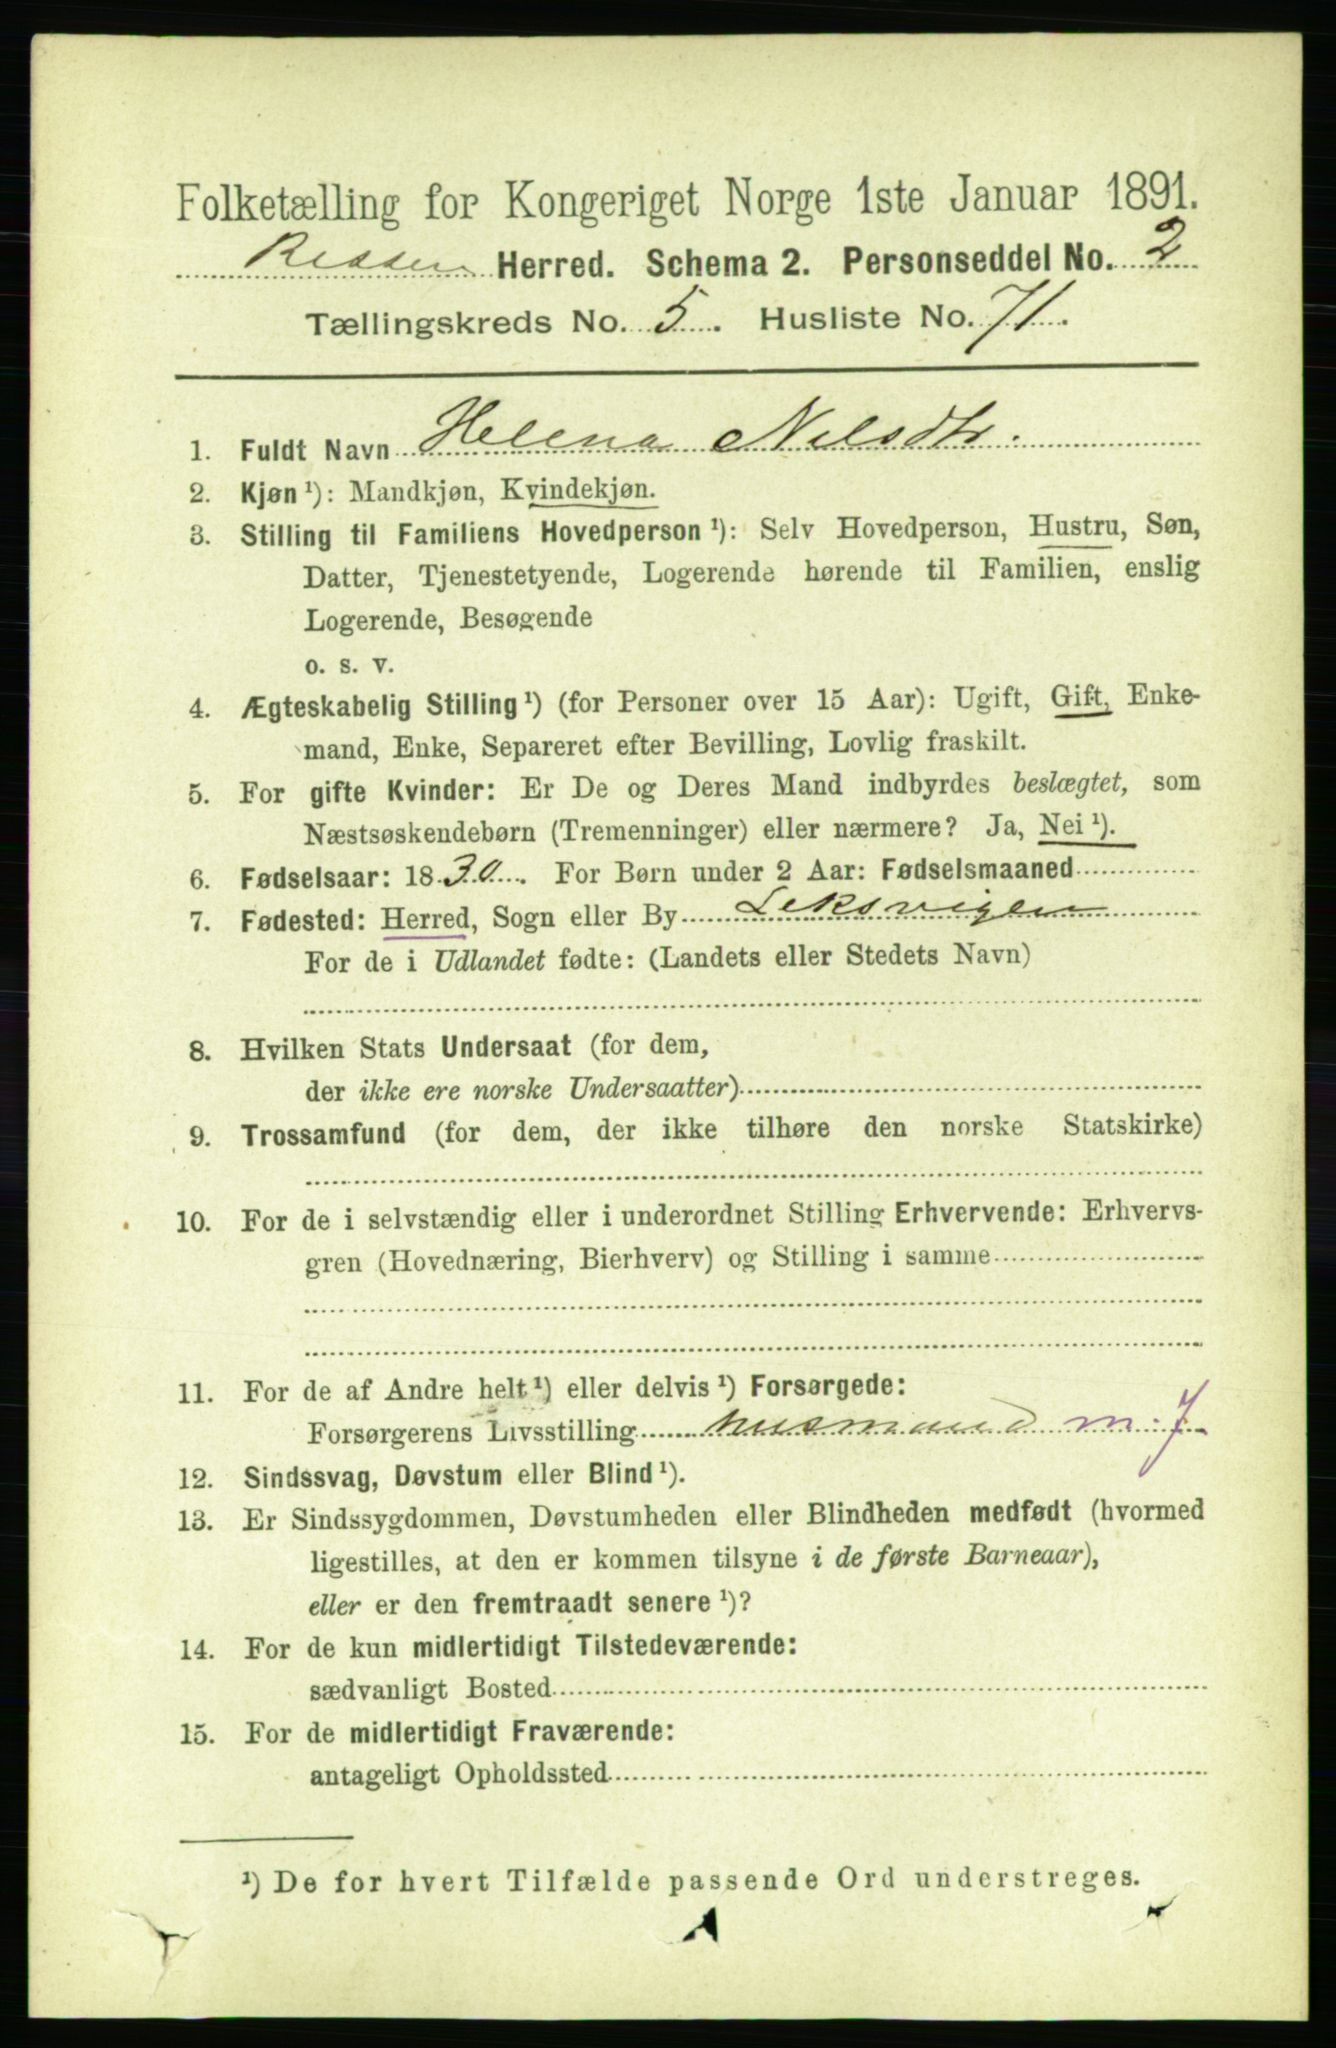 Folketælling for Kongeriget Norge 1ste Januar 1891.
Rissen Herred. Schema 2. Personseddel No. 2
Tællingskreds No. 5. Husliste No. 71.
1. Fuldt Navn Helena Nilsdtr.
2. Kjøn ¹): Mandkjøn, Kvindekjøn.
3. Stilling til Familiens Hovedperson ¹): Selv Hovedperson, Hustru, Søn,
Datter, Tjenestetyende, Logerende hørende til Familien, enslig
Logerende, Besøgende
o. s. v.
4. Ægteskabelig Stilling ¹) (for Personer over 15 Aar): Ugift, Gift, Enke-
mand, Enke, Separeret efter Bevilling, Lovlig fraskilt.
5. For gifte Kvinder: Er De og Deres Mand indbyrdes beslægtet, som
Næstsøskendebørn (Tremenninger) eller nærmere? Ja, Nei ¹).
6. Fødselsaar: 1830. For Børn under 2 Aar: Fødselsmaaned
7. Fødested: Herred, Sogn eller By Leksvigen
For de i Udlandet fødte: (Landets eller Stedets Navn)
8. Hvilken Stats Undersaat (for dem,
der ikke ere norske Undersaatter)
9. Trossamfund (for dem, der ikke tilhøre den norske Statskirke)
10. For de i selvstændig eller i underordnet Stilling Erhvervende: Erhvervs-
gren (Hovednæring, Bierhverv) og Stilling i samme
11. For de af Andre helt ¹) eller delvis ¹) Forsørgede:
Forsørgerens Livsstilling husmand m. J.
12. Sindssvag, Døvstum eller Blind ¹).
13. Er Sindssygdommen, Døvstumheden eller Blindheden medfødt (hvormed
ligestilles, at den er kommen tilsyne i de første Barneaar),
eller er den fremtraadt senere ¹)?
14. For de kun midlertidigt Tilstedeværende:
sædvanligt Bosted
15. For de midlertidigt Fraværende:
antageligt Opholdssted
¹) De for hvert Tilfælde passende Ord understreges.